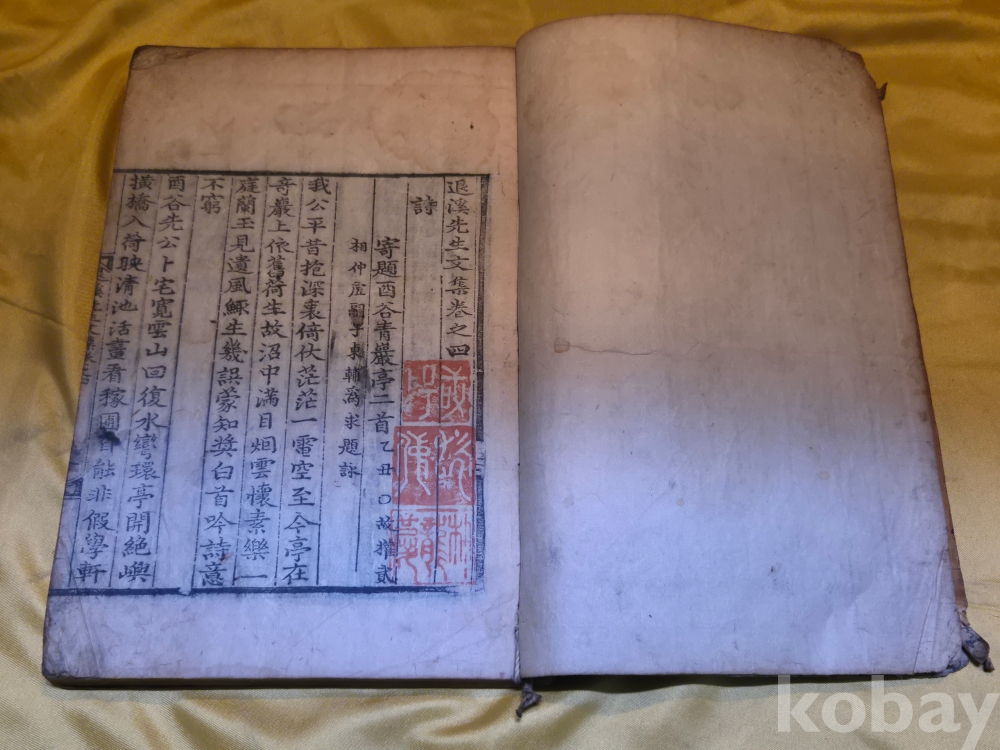 退溪先生文集卷之四
詩
寄題酉谷青巖亭二首乙丑○故權貳
相仲虛嗣子東輔爲求題詠
我公平昔抱深衷倚伏茫茫一電空至今亭在
奇巖上依舊荷生故沼中滿目烟雲懷素樂一
庭蘭玉見遺風鯫生幾誤蒙知奬白首吟詩意
不窮
酉谷先公卜宅寬雲山回復水彎環亭開絶嶼
橫橋入荷映清池活畫看稼圃自能非假學軒
kobay